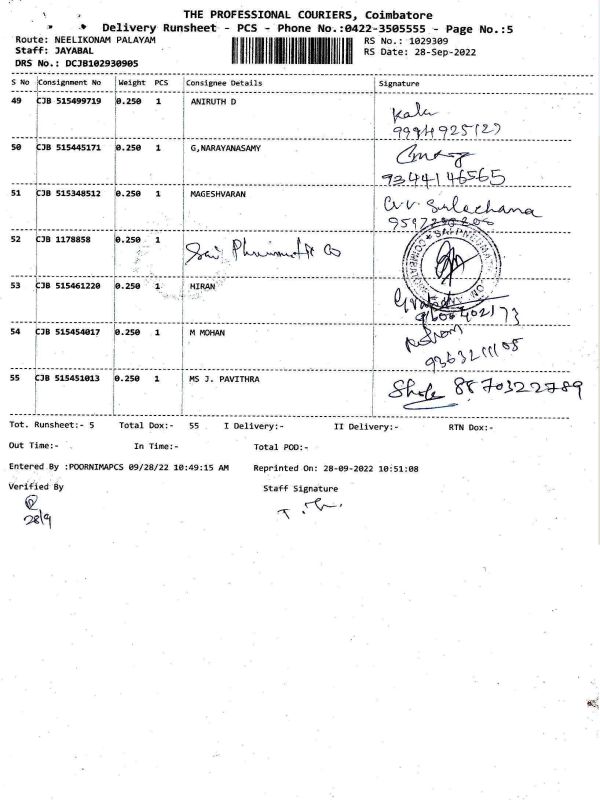 THE PROFESSIONAL COURIERS, Coimbatore
Delivery Runsheet - PCS - Phone No.:0422-3505555 - Page No.:5
Route: NEELIKONAM PALAYAM
RS No.: 1029309
Staff: JAYABAL
RS Date: 28-Sep-2022
DRS No.: DCJB102930905
S No Consignment No Weight PCS Consignee Details Signature
49 CJB 515499719 0.250 1 ANIRUTH D
50 CJB 515445171 0.250 1 G,NARAYANASAMY
9344146565
51 CJB 515348512 0.250 1 MAGESHVARAN
52 CJB 1178858 0.250 1
53 CJB 515461220 0.250 1 HIRAN
54 CJB 515454017 0.250 1 M MOHAN
55 CJB 515451013 0.250 1 MS J. PAVITHRA
8870322789
Tot. Runsheet:- 5 Total Dox:- 55 I Delivery:- II Delivery:- RTN Dox:-
Out Time:- In Time:- Total POD:-
Entered By :POORNIMAPCS 09/28/22 10:49:15 AM Reprinted On: 28-09-2022 10:51:08
Verified By Staff Signature
28/9